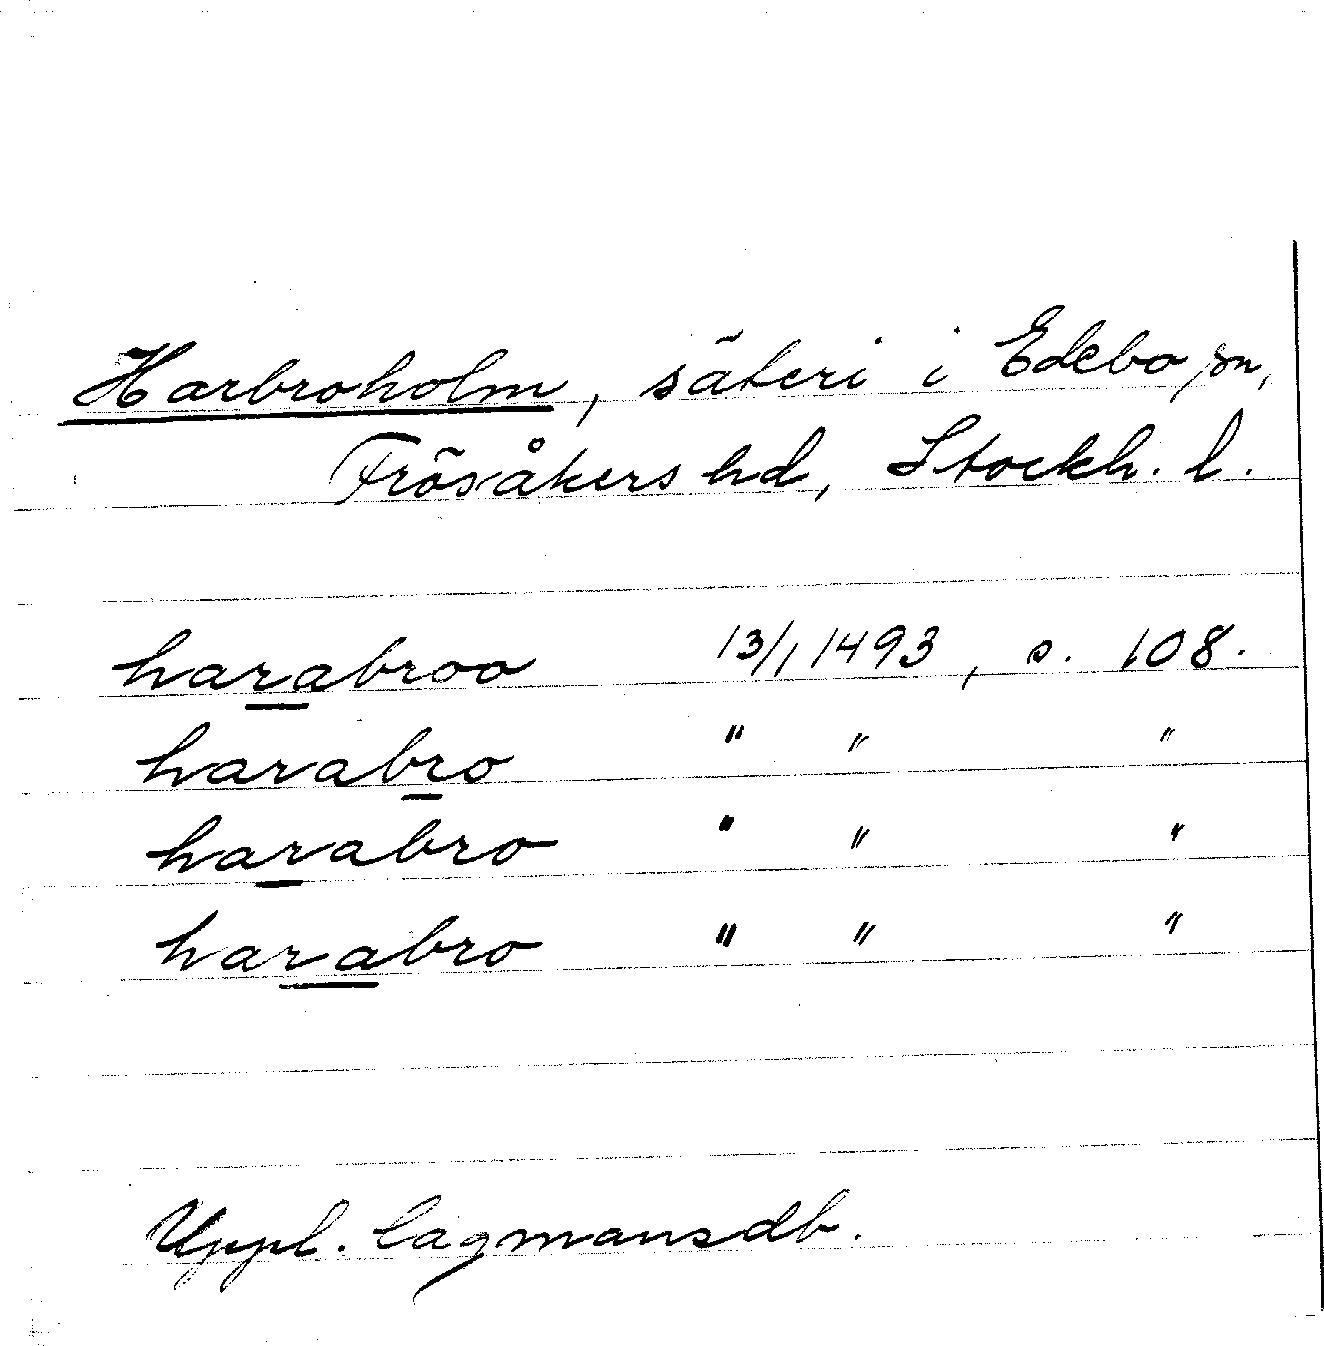 Harbroholm, säteri i Edebo sn,
Frösåkers hd, Stockh. l.
harabroo 13/1 1493, s. 108.
harabro " " "
harabro " " "
harabro " " "
Uppl. lagmansdb.